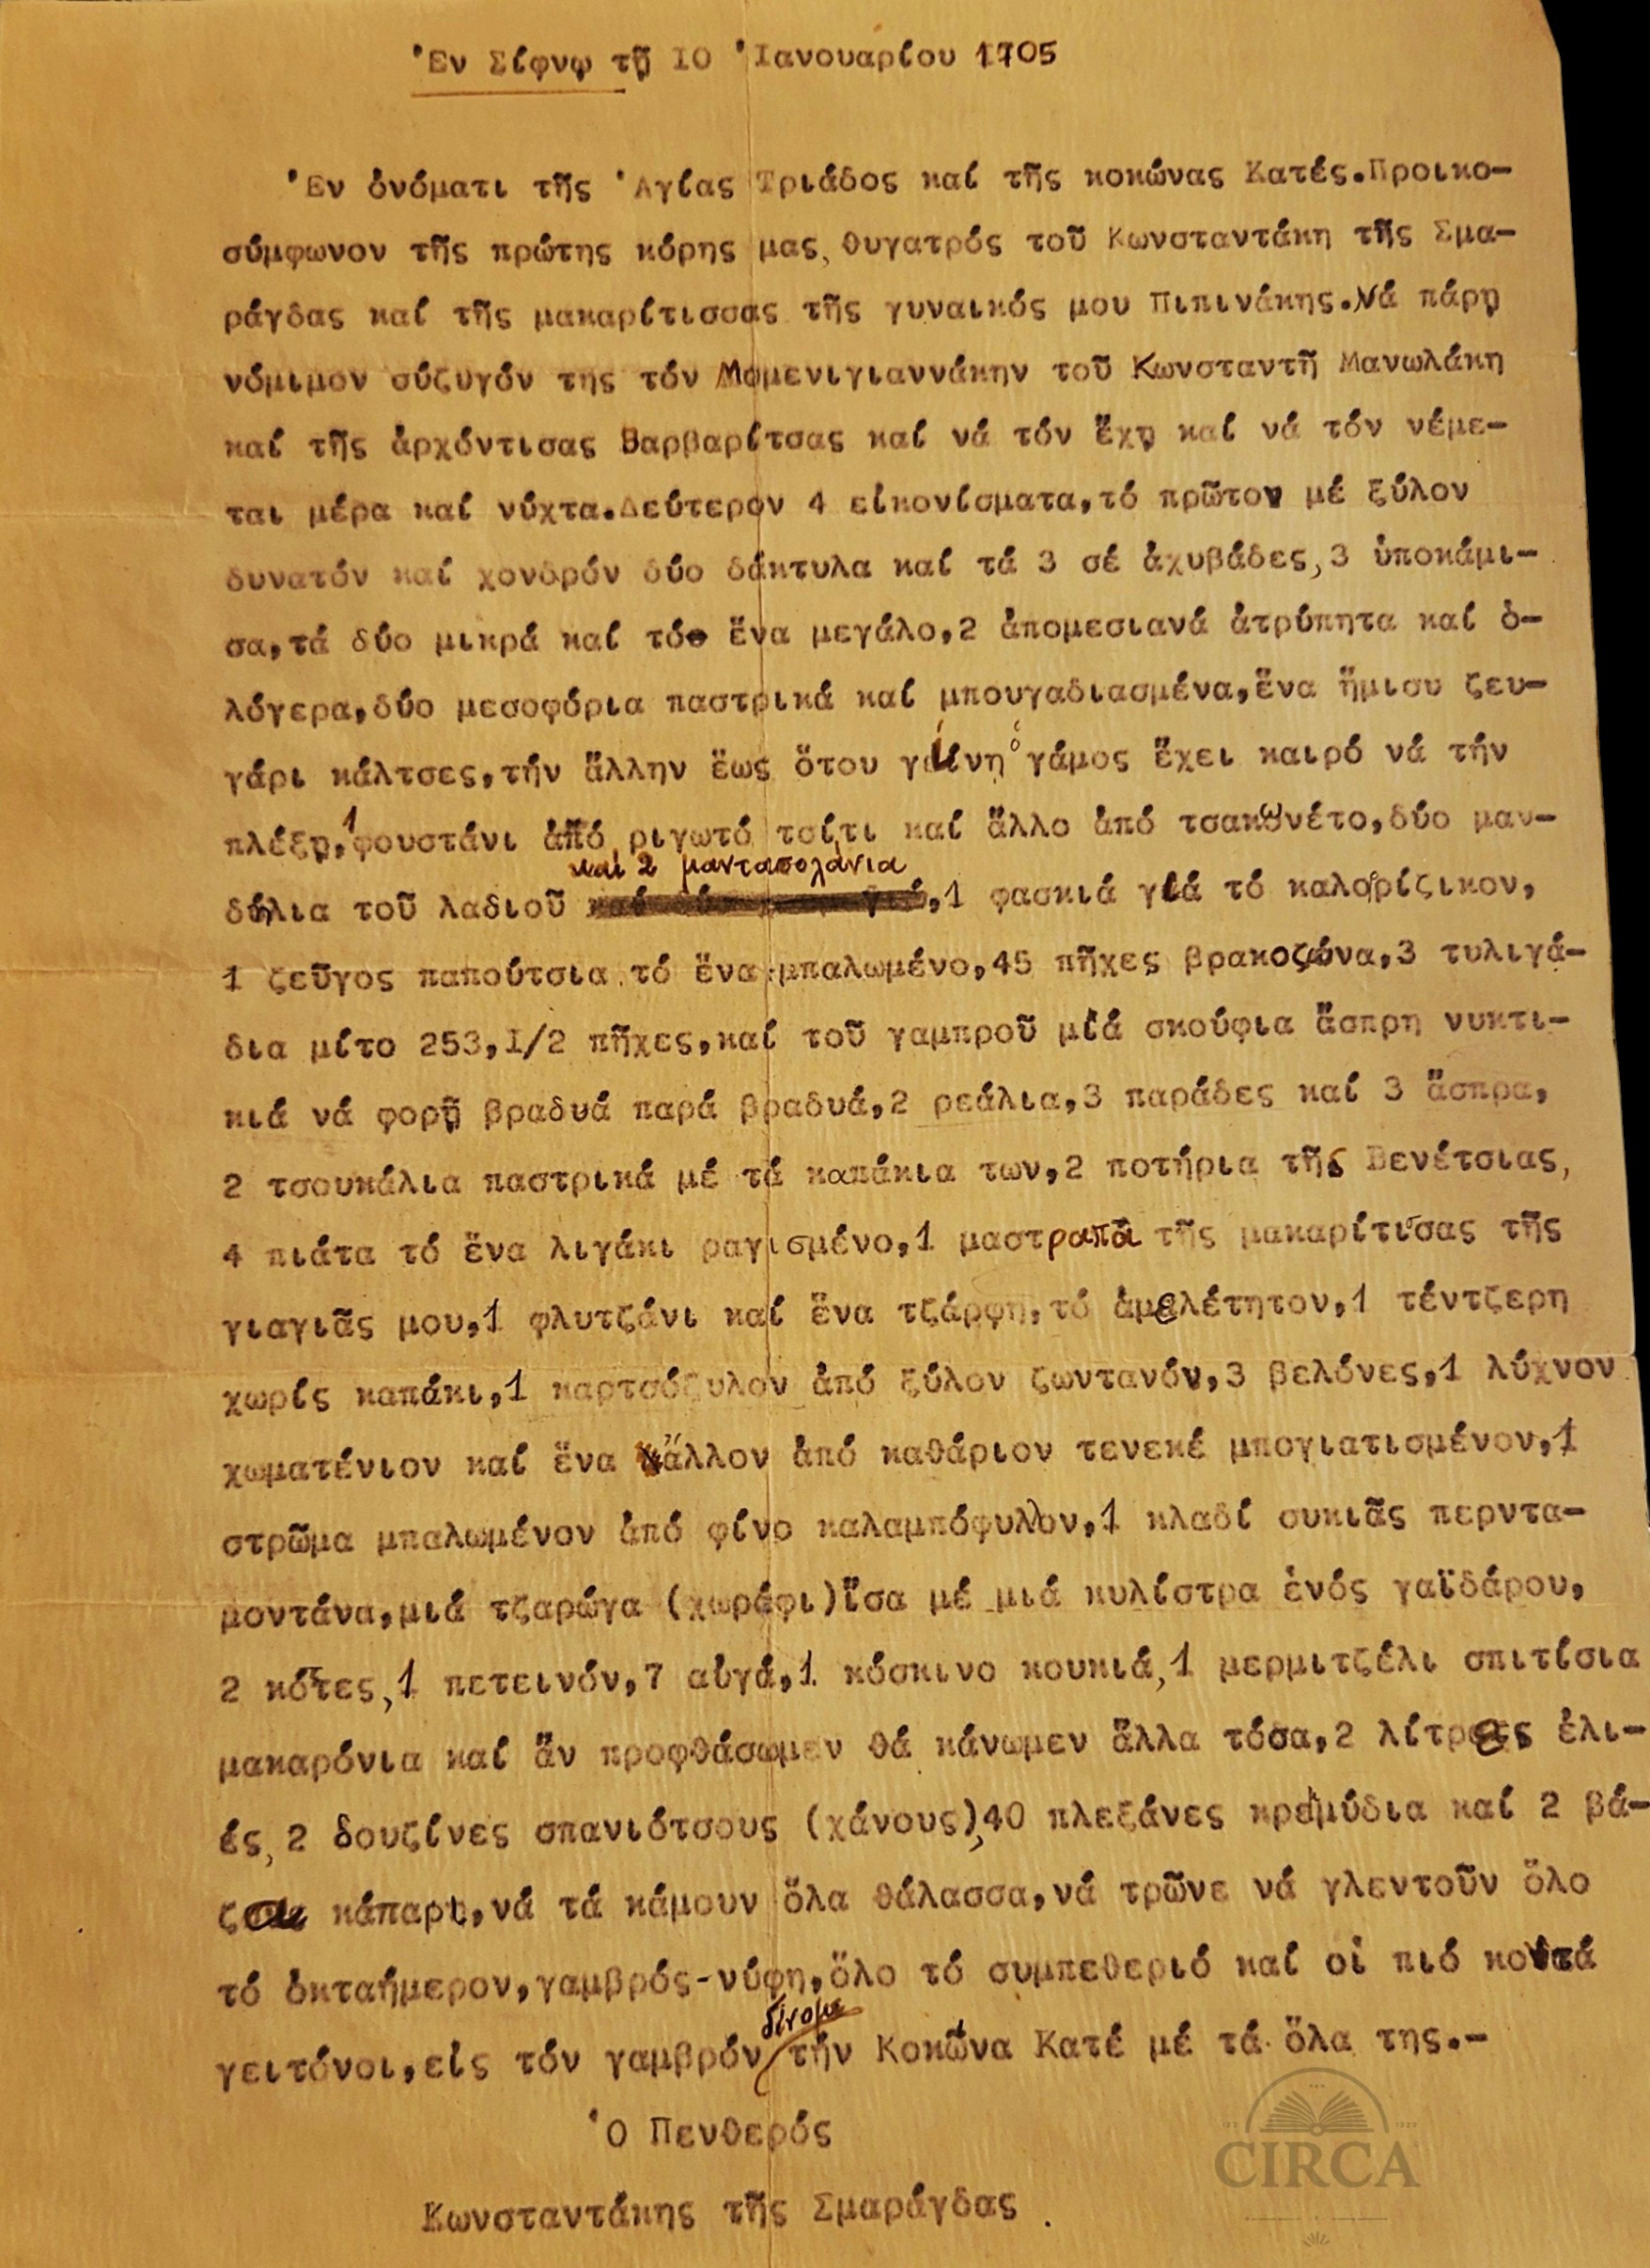 Ἐν Σίφνῳ τῇ 10 Ἰανουαρίου 1705
Ἐν ὀνόματι τῆς Ἁγίας Τριάδος καί τῆς κοκώνας Κατές.Προικο-
σύμφωνον τῆς πρώτης κόρης μας, θυγατρός τοῦ Κωνσταντάκη τῆς Σμα-
ράγδας καί τῆς μακαρίτισσας τῆς γυναικός μου Πιπινάκης.Νά πάρῃ
νόμιμον σύζυγόν της τόν Μομενιγιαννάκην τοῦ Κωνσταντῆ Μανωλάκη
καί τῆς ἀρχόντισας Βαρβαρίτσας καί νά τόν ἔχῃ καί νά τόν νέμε-
ται μέρα καί νύχτα.Δεύτερον 4 εἰκονίσματα,τό πρῶτον μέ ξύλον
δυνατόν καί χονδρόν δύο δάκτυλα καί τά 3 σέ ἀχυβάδες, 3 ὑποκάμι-
σα,τά δύο μικρά καί τό ἕνα μεγάλο,2 ἀπομεσιανά ἀτρύπητα καί ὁ-
λόγερα,δύο μεσοφόρια παστρικά καί μπουγαδιασμένα,ἕνα ἥμισυ ζευ-
γάρι κάλτσες,τήν ἄλλην ἕως ὅτου γίνη ὁ γάμος ἔχει καιρό νά τήν
πλέξῃ,1 φουστάνι ἀπό ριγωτό τσίτι καί ἄλλο ἀπό τσακωνέτο,δύο μαν-
δήλια τοῦ λαδιοῦ καί 2 μανταπολάνια,1 φασκιά γιά τό καλορίζικον,
1 ζεῦγος παπούτσια τό ἕνα μπαλωμένο,45 πῆχες βρακοζώνα,3 τυλιγά-
δια μίτο 253,1/2 πῆχες,καί τοῦ γαμπροῦ μιά σκούφια ἄσπρη νυκτι-
κιά νά φορῇ βραδυά παρά βραδυά,2 ρεάλια,3 παράδες καί 3 ἄσπρα,
2 τσουκάλια παστρικά μέ τά καπάκια των,2 ποτήρια τῆς Βενέτσιας,
4 πιάτα τό ἕνα λιγάκι ραγισμένο,1 μαστραπᾶ τῆς μακαρίτισσας τῆς
γιαγιᾶς μου,1 φλυτζάνι καί ἕνα τζάρφη,τό ἀμελέτητον,1 τέντζερη
χωρίς καπάκι,1 καρτσόξυλον ἀπό ξύλον ζωντανόν,3 βελόνες,1 λύχνον
χωματένιον καί ἕνα ἄλλον ἀπό καθάριον τενεκέ μπογιατισμένον,1
στρῶμα μπαλωμένον ἀπό φίνο καλαμπόφυλλον,1 κλαδί συκιᾶς περντα-
μοντάνα,μιά τζαρώγα (χωράφι)ἴσα μέ μιά κυλίστρα ἑνός γαϊδάρου,
2 κότες,1 πετεινόν,7 αὐγά,1 κόσκινο κουκιά,1 μερμιτζέλι σπιτίσια
μακαρόνια καί ἄν προφθάσωμεν θά κάνωμεν ἄλλα τόσα,2 λίτρες ἐλι-
ές, 2 δουζίνες σπανιότσους (χάνους),40 πλεξάνες κρεμύδια καί 2 βά-
ζα κάπαρι,νά τά κάμουν ὅλα θάλασσα,νά τρῶνε νά γλεντοῦν ὅλο
τό ὀκταήμερον,γαμβρός-νύφη,ὅλο τό συμπεθεριό καί οἱ πιό κοντά
γειτόνοι,εἰς τόν γαμβρόν δίνομε τήν Κοκώνα Κατέ μέ τά ὅλα της.-
Ὁ Πενθερός
Κωνσταντάκης τῆς Σμαράγδας.
CIRCA